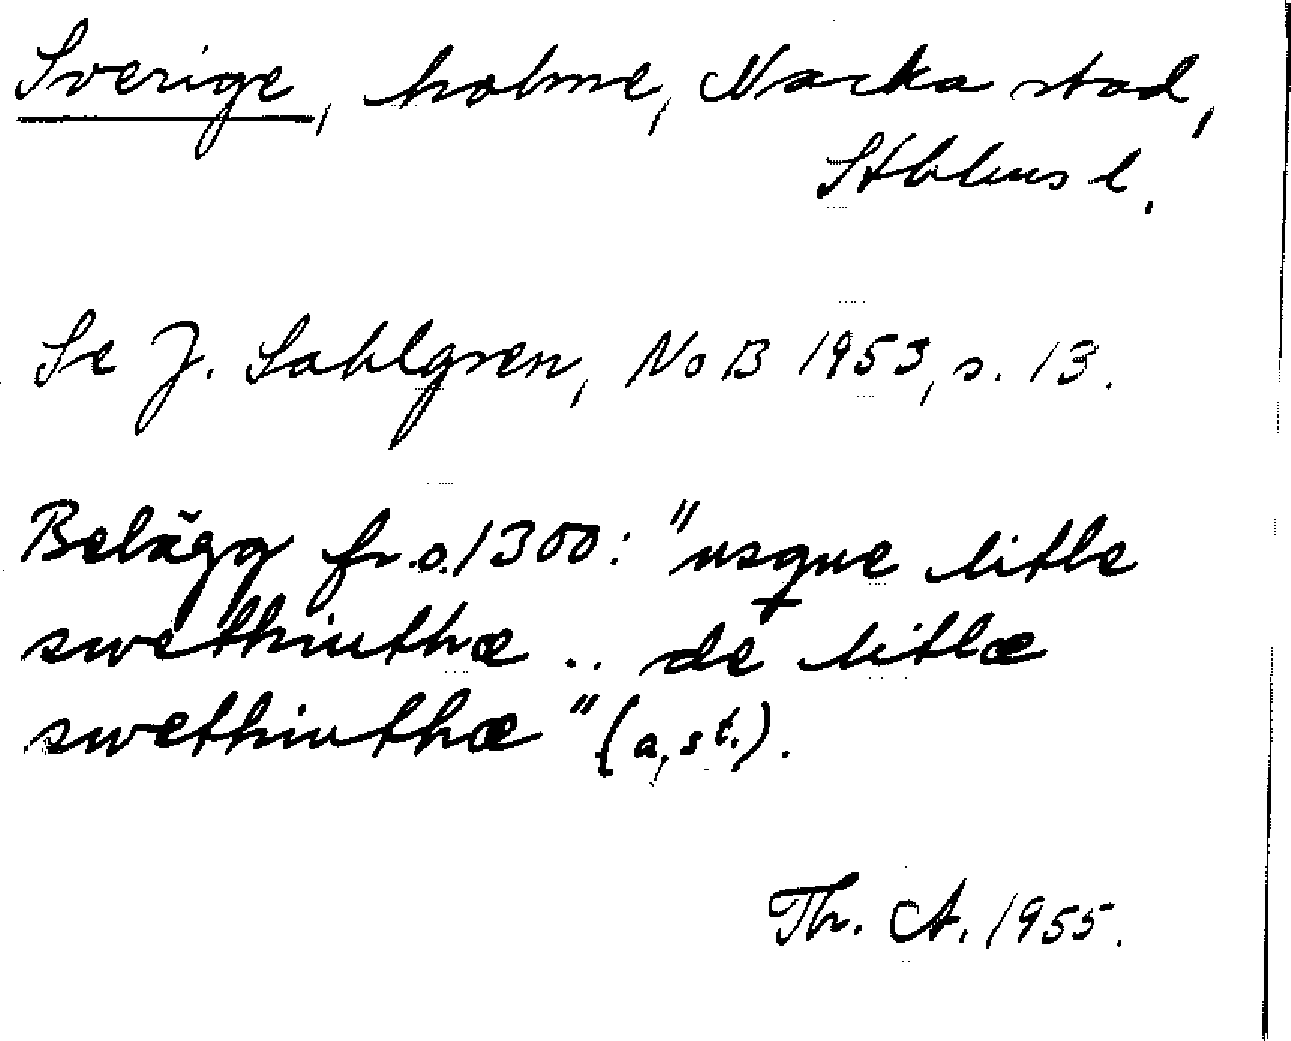 Sverige, holme, Nacka stad,
Sthlms l.
Se J. Sahlgren, NoB 1953, s. 13.
Belägg fr. o. 1300: "usque litle
swethiuthæ .. de litlæ
swethiuthæ" (a, st.).
Th. A. 1955.